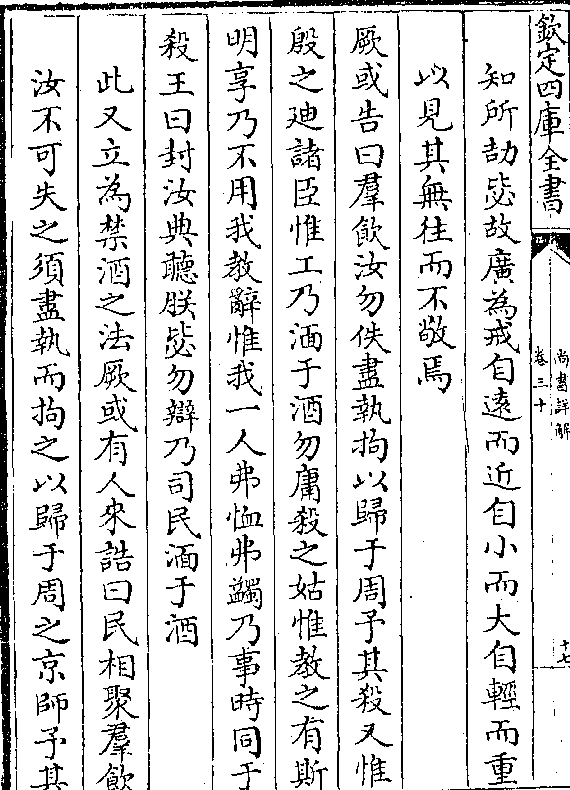 欽定四庫全書
尚書詳解
卷三十
十七
知所劼毖故廣為戒自遠而近自小而大自輕而重
以見其無往而不敬焉
厥或告曰羣飲汝勿佚盡執拘以歸于周予其殺又惟
殷之廸諸臣惟工乃湎于酒勿庸殺之姑惟教之有斯
明享乃不用我教辭惟我一人弗恤弗蠲乃事時同于
殺王曰封汝典聽朕毖勿辯乃司民湎于酒
此又立為禁酒之法厥或有人來誥曰民相聚羣飲
汝不可失之須盡執而拘之以歸于周之京師予其